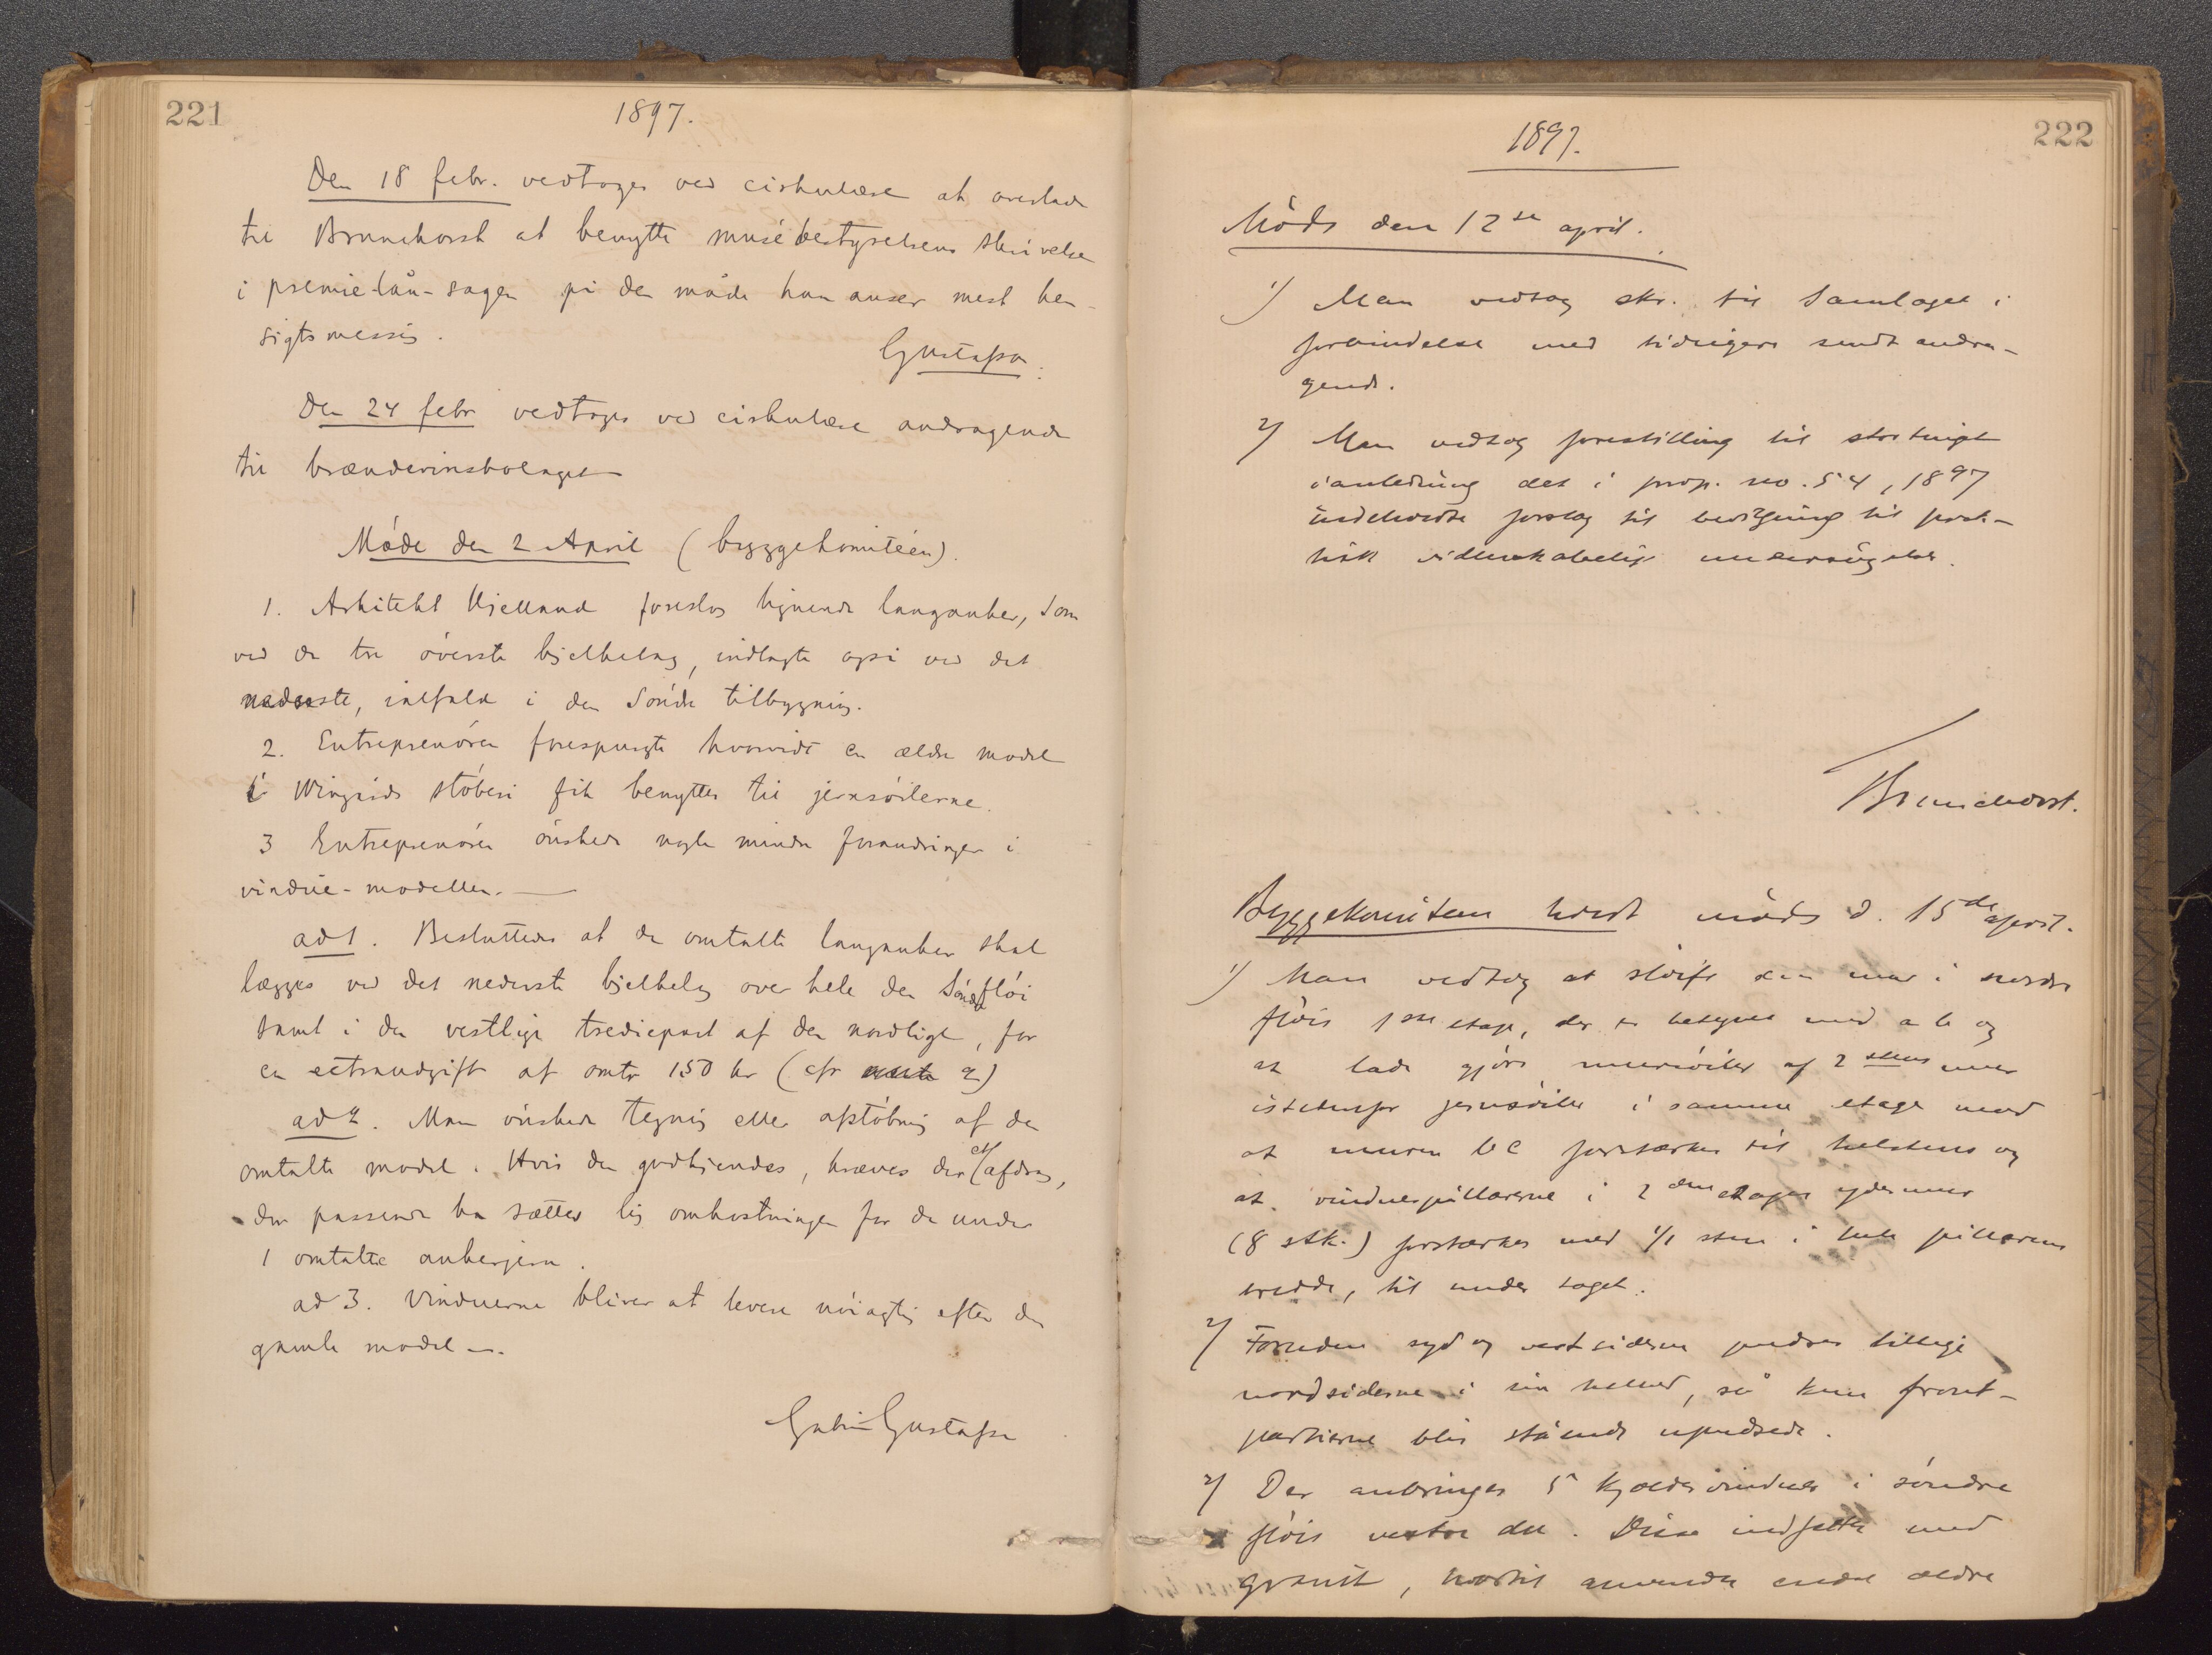 221
1897.
Den 18 febr. vedtoges ved cirkulære at overlade
til Brunchorst at benytte musébestyrelsens skrivelse
i præmie-lån-sagen på den måde han anser mest hen-
sigtsmessig.
Gustafson.
Den 24 febr vedtoges ved cirkulære andragende
til brændevinsbolaget
Møde den 2 April (byggekomitéen).
1. Arkitekt Kielland foreslog lignende langanker, som
ved de tre øverste bjelkelag, indlagte også ved det
nederste, ialfald i den søndre tilbygning.
2. Entreprenøren forespurgte hvorvidt en ældre model
i Wingårds støberi fik benyttes til jernsøilerne.
3 Entreprenøren ønskede nogle mindre forandringer i
vindue-modellen.
ad 1. Besluttedes at de omtalte langanker skal
lægges ved det nederste bjelkelag over hele den Søndre fløi
samt i den vestlige trediepart af den nordlige, for
en extraudgift af omtr 150 kr (cfr 2)
ad 2. Man ønskede tegning eller afstøbning af den
omtalte model. Hvis den godkjendes, kræves der et afdrag,
der passende kan sættes lig omkostningen for de under
1 omtalte ankerjern.
ad 3. Vinduerne bliver at levere nøiagtig efter den
gamle model.
Gabriel Gustafson
222
1897.
Møde den 12te april.
1) Man vedtog skr. til Samlaget i
forbindelse med tidligere sendt andra-
gende.
2) Man vedtog forestilling til stortinget
i anledning det i prop. no. 54, 1897
indeholdte forslag til bevilgning til prak-
tisk videnskabelige undersøgelser.
Brunchorst.
Byggekomiteen holdt møde d. 15de april.
1) Man vedtog at sløife den mur i nordre
fløis 1ste etage, der er betegnet med a b og
at lade gjøre mursøiler af 2 stens mur
istedenfor jernsøiler i samme etage mod
at muren b c forstærkes til helstens og
at vinduespillarerne i 2den etages ydermur
(8 stk.) forstærkes med 1/1 sten i hele pillarens
bredde, til under taget.
2) Foruden syd og vestsiderne pudses tillige
nordsiderne i sin helhed, så kun front-
partierne blir stående upudsede.
2) Der anbringes 5 kjeldervinduer i søndre
fløis vestre del. Disse indfattes med
granit, hvortil anvendes endel ældre